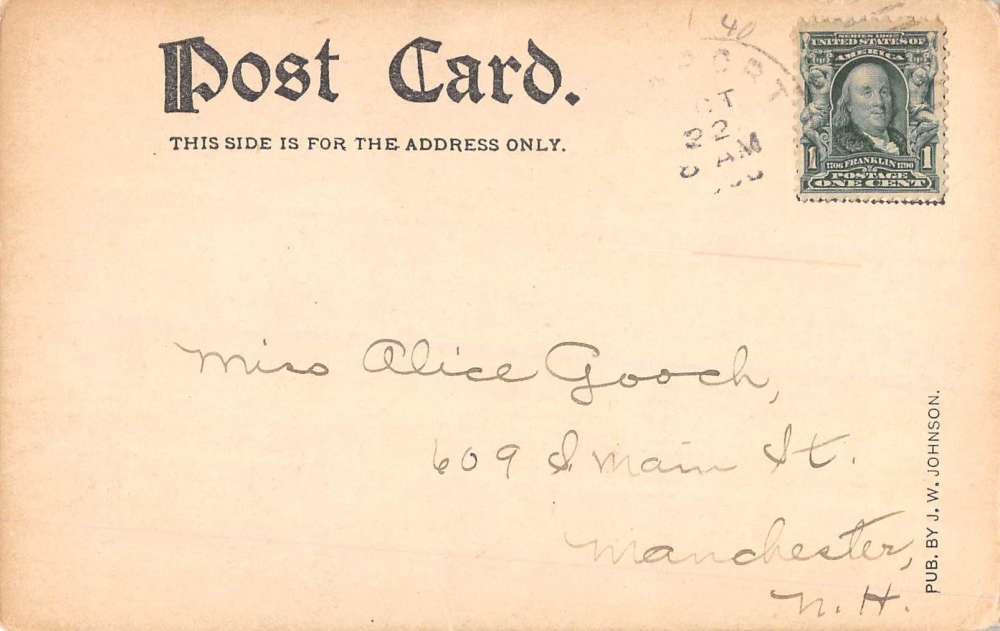 Post Card.
THIS SIDE IS FOR THE ADDRESS ONLY.
40
2
AM
SERIES 1902
UNITED STATES OF
AMERICA
1 1706 FRANKLIN 1790 1
POSTAGE
ONE CENT
Miss Alice Gooch,
609 S. Main St.
Manchester,
N. H.
PUB. BY J. W. JOHNSON.